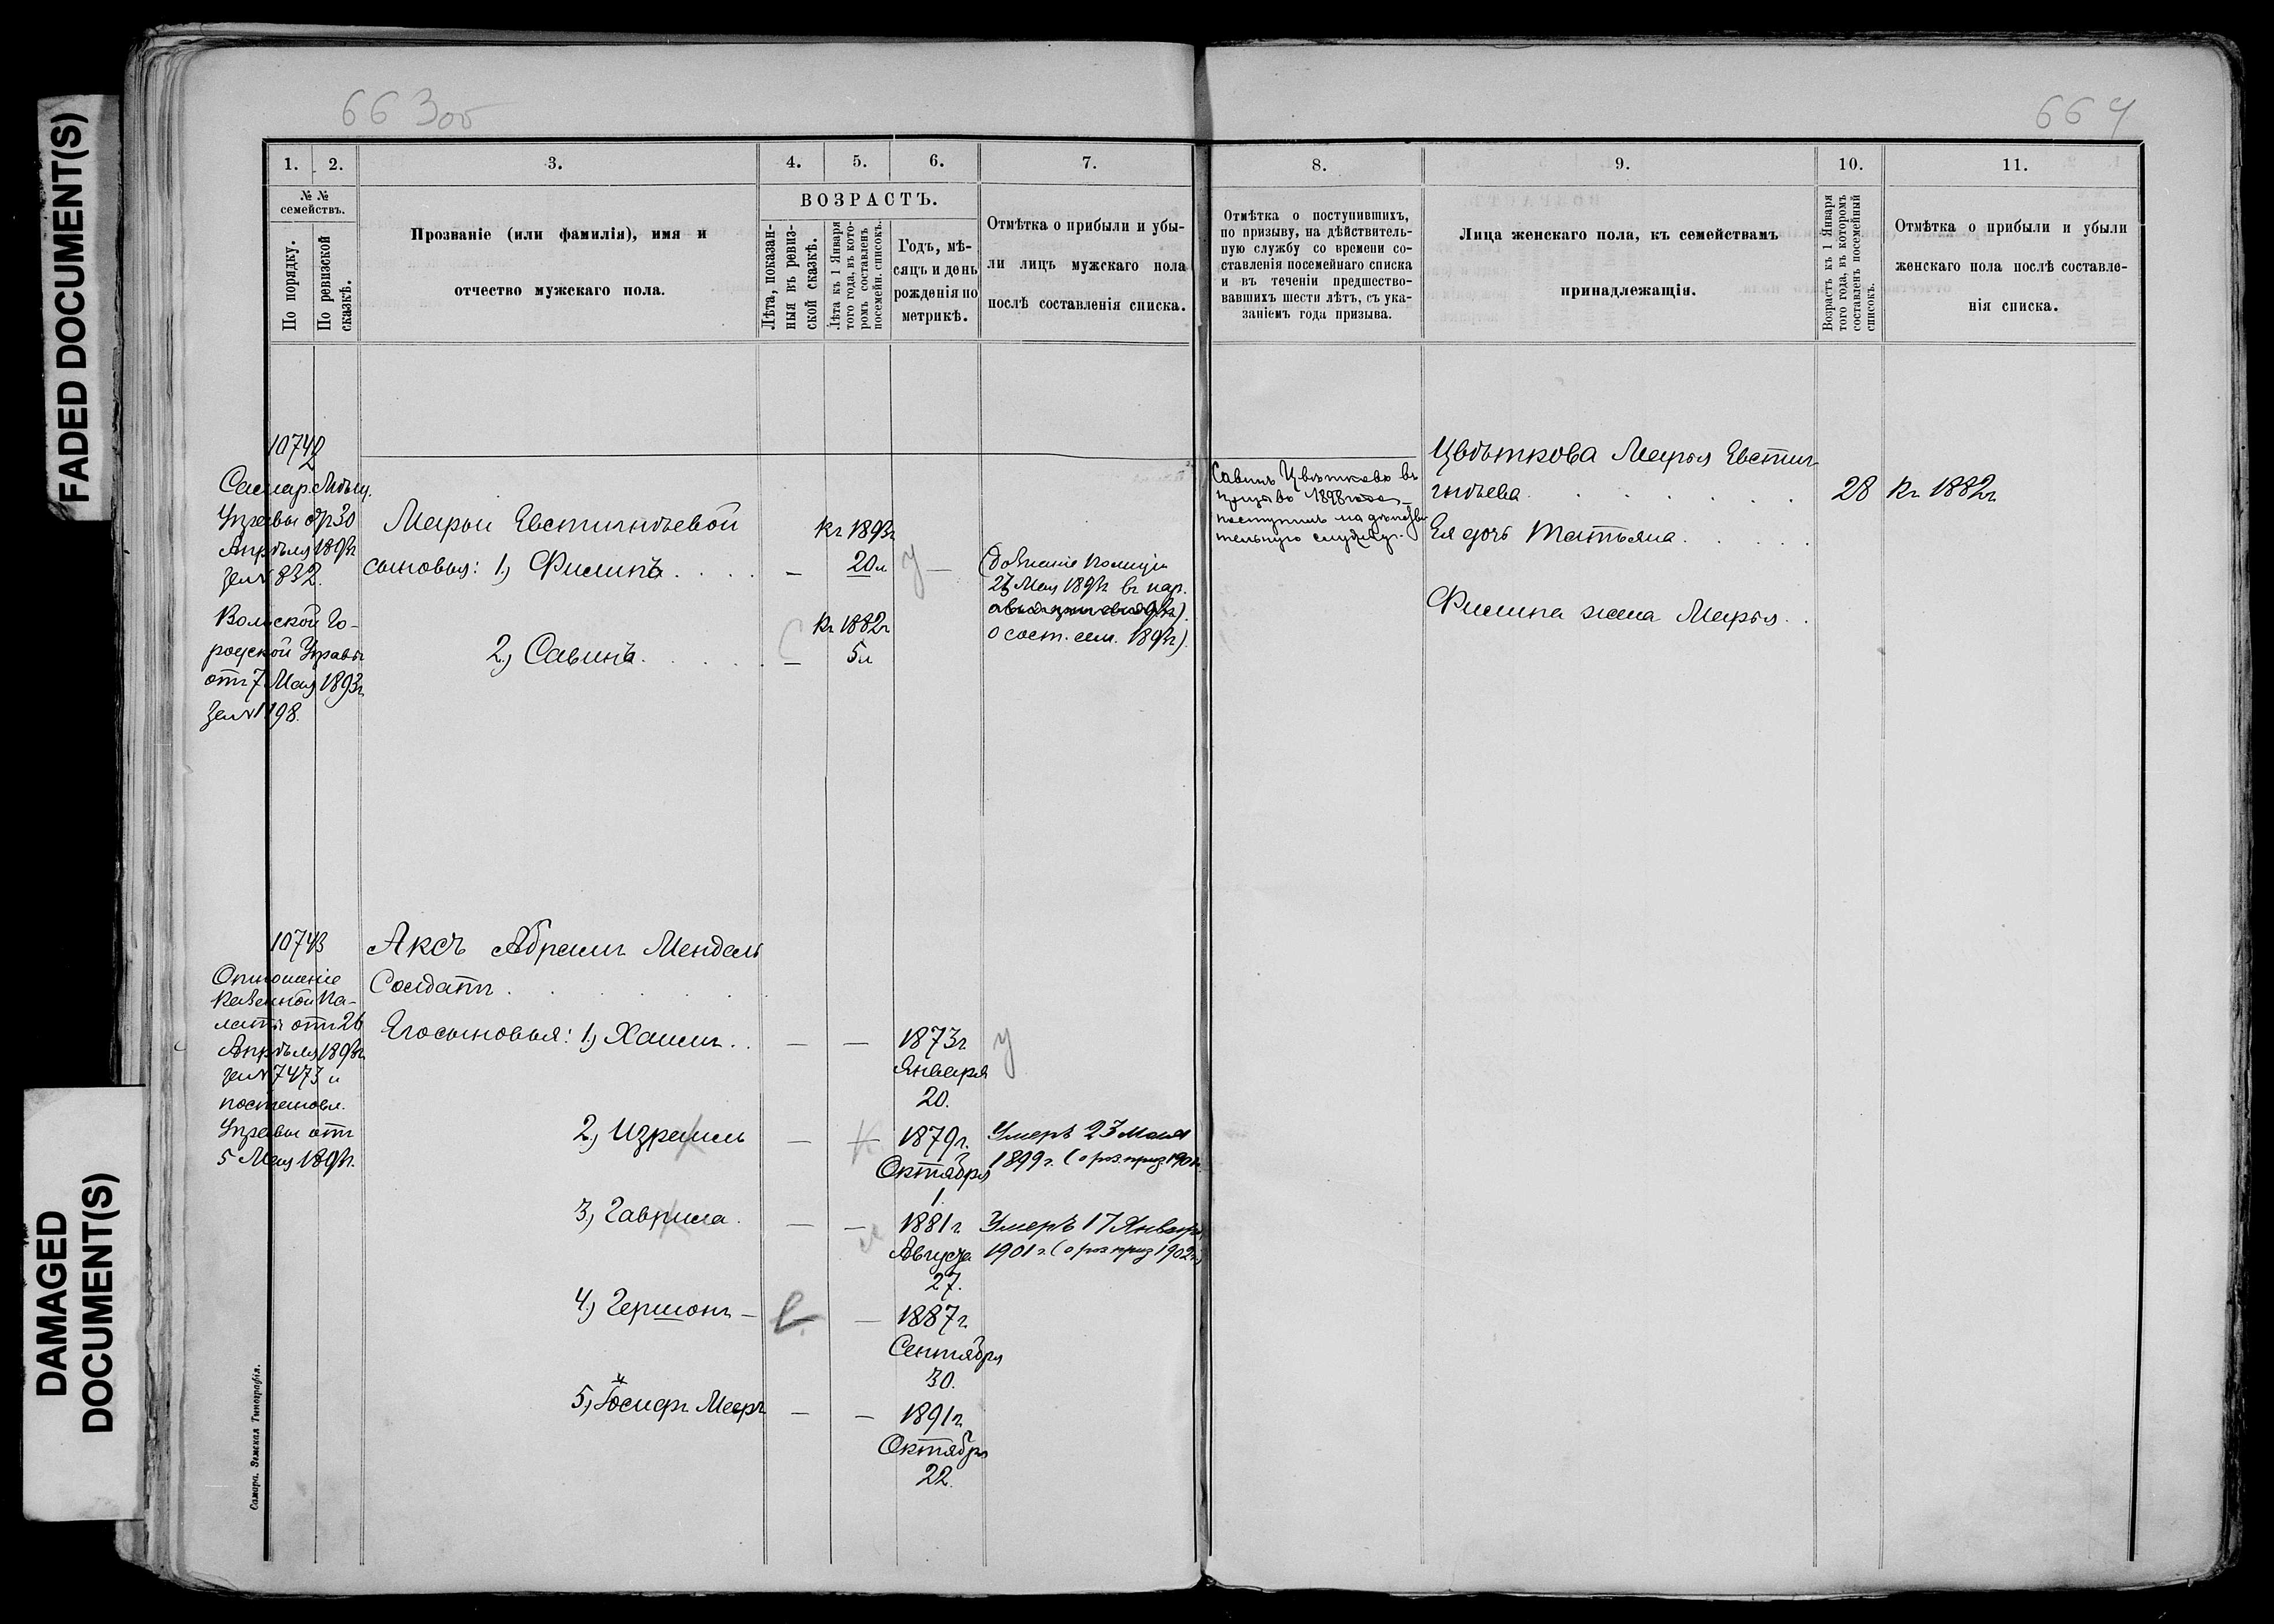 FADED DOCUMENT(S)
DAMAGED
DOCUMENT(S)
663об
664
1.
2.
3.
4.
5.
6.
7.
8.
9.
10.
11.
№ №
семействъ.
По порядку.
По ревизской
сказкѣ.
Прозваніе (или фамилія), имя и
отчество мужскаго пола.
ВОЗРАСТЪ.
Лѣта, показан-
ныя въ ревиз-
ской сказкѣ.
Лѣта къ 1 Января
того года, въ кото-
ромъ составленъ
посемейн. списокъ.
Годъ, мѣ-
сяцъ и день
рожденія по
метрикѣ.
Отмѣтка о прибыли и убы-
ли лицъ мужскаго пола
послѣ составленія списка.
Отмѣтка о поступившихъ,
по призыву, на дѣйствитель-
ную службу со времени со-
ставленія посемейнаго списка
и въ теченіи предшество-
вавшихъ шести лѣтъ, съ ука-
заніемъ года призыва.
Лица женскаго пола, къ семействамъ
принадлежащія.
Возрастъ къ 1 Января
того года, въ которомъ
составленъ посемейный
списокъ.
Отмѣтка о прибыли и убыли
женскаго пола послѣ составле-
нія списка.
10742
Самар. Мѣщ.
Управы от 30
Апрѣля 1893г
за № 832.
Вольской Го-
родской Управы
отъ 7 Мая 1893г
за № 1198.
Марьи Евстигнѣевой
сыновья: 1) Филипъ . . . . —
къ 1893г
20л
2) Савинъ . . . . . —
къ 1882г
5л
27 Мая 1893г въ нар.
о сост. сем. 1893г).
Савинъ Цвѣтковъ въ
1898 года
поступилъ на дѣйстви-
тельную службу.
Цвѣткова Марья Евстиг-
нѣева . . . . . . 28 къ 1882г
Ея дочь Татьяна . . . . .
Филипа жена Марья . .
10743
Отношеніе
Казенной Па-
латы отъ 26
Апрѣля 1893г
за № 7473 и
постановл.
Управы отъ
5 Мая 1893г.
Аксъ Абрамъ Мендель
Солдатъ . . . . .
Его сыновья: 1) Хаимъ . . — — 1873г.
Января
20.
2) Израиль — — 1879г.
Октября
1.
Умеръ 23 Мая
1899г. (о роз. приз 1901г.
3) Гаврила . — — 1881г
Августа
27.
Умеръ 17 Января
1901г. (о роз приз 1902г.)
4) Гершонъ — — 1887г
Сентября
30.
5) Іосифъ Мееръ — — 1891г
Октября
22.
Самара. Земская Типографія.